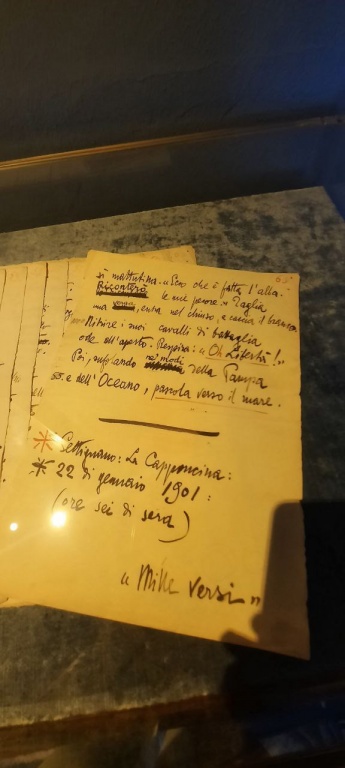 sì mattutina. «Ecco che è fatta l'alba.
Riconterò le mie pecore.» Taglia
una verga, entra nel chiuso, e caccia il branco
Nitrire i suoi cavalli di battaglia
ode all'aperto. Respira: «Oh Libertà!»
Poi, zufolando nei modi della Pampa
e dell'Oceano, pascola verso il mare.
* Settignano: La Capponcina:
* 22 di gennaio 1901:
(ore sei di sera)
«Mille versi»